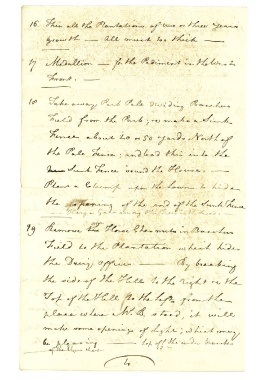 16 Thin all the Plantations of two or three Years
growth — all much too thick —
17 Medallion — for the Pediment in the West
Front. —
18 Take away Park Pale dividing
Field from the Park; or make a Sunk
Fence about 40 or 50 yards North of
the Pale Fence; and lead this into the
Sunk Fence round the House. —
Plant a Clump upon the Lawn to hide
the opening of the end of the Sunk Fence
19 Remove the Horse Chesnuts in
Field to the Plantation which hides
the Dairy, offices — By breaking
the side of the Hill to the right or the
Top of the Hill to the left from the
place where Mr B. stood, it will
make some openings of Light; which may
be pleasing — top off the under branches